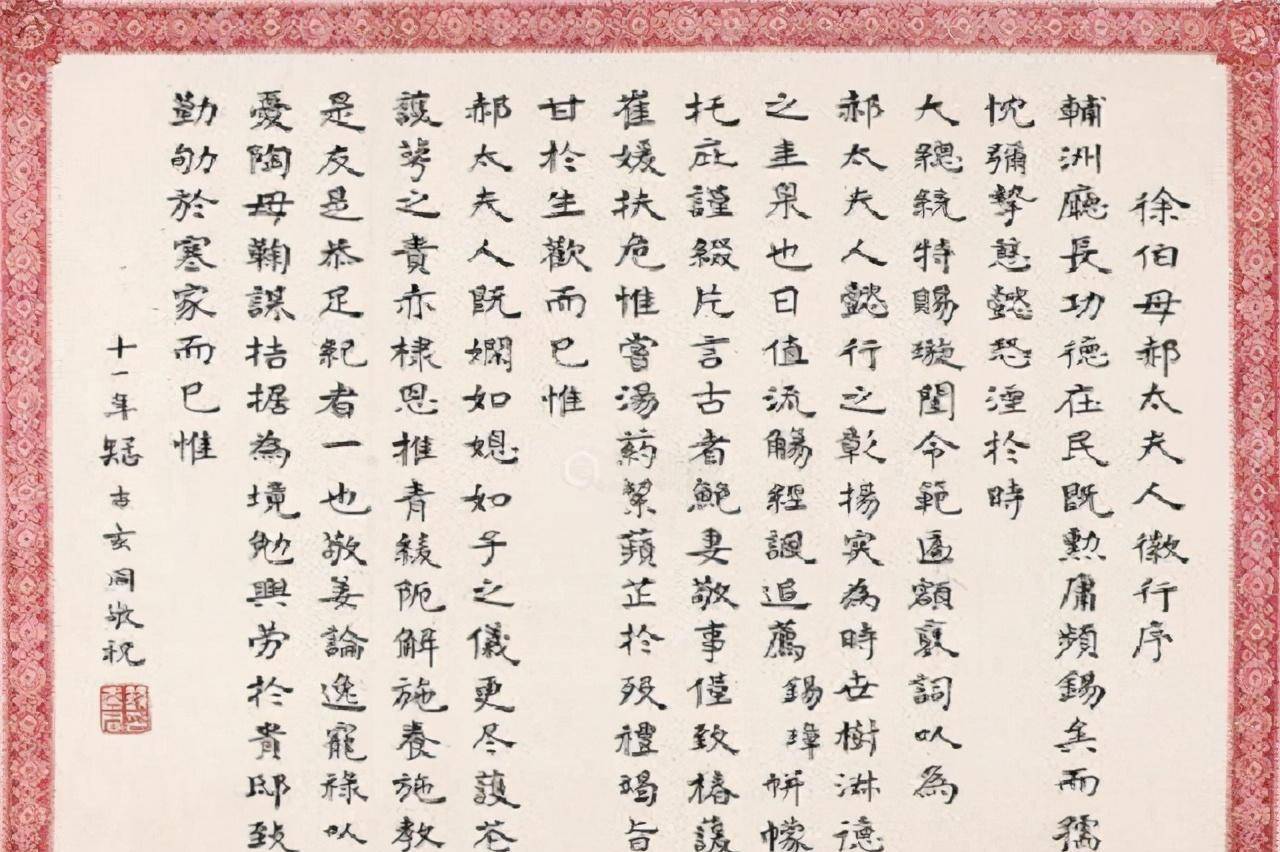 徐伯母郝太夫人徽行序
輔洲廳長功德在民既勳庸頻錫矣而孺
忱彌摯慈懿恐湮於時
大總統特賜璇閨令範匾額襃詞以為
郝太夫人懿行之彰揚實為時世樹淋德
之圭臬也日值流觴經諷追薦錫瑋帡幪
托庇謹綴片言古者鮑妻敬事僅致椿諼
崔媛扶危惟嘗湯药絜蘋芷於歿禮竭旨
甘於生歡而已惟
郝太夫人既嫻如媳如子之儀更尽護花
護萼之責亦棣恩推青綾阨解施養施教
是友是恭足紀者一也敬姜論逸寵祿以
憂陶母鞠謀拮据為境勉興劳於貴邸致
勤劬於寒家而已惟
十一年疑古玄同敬祝